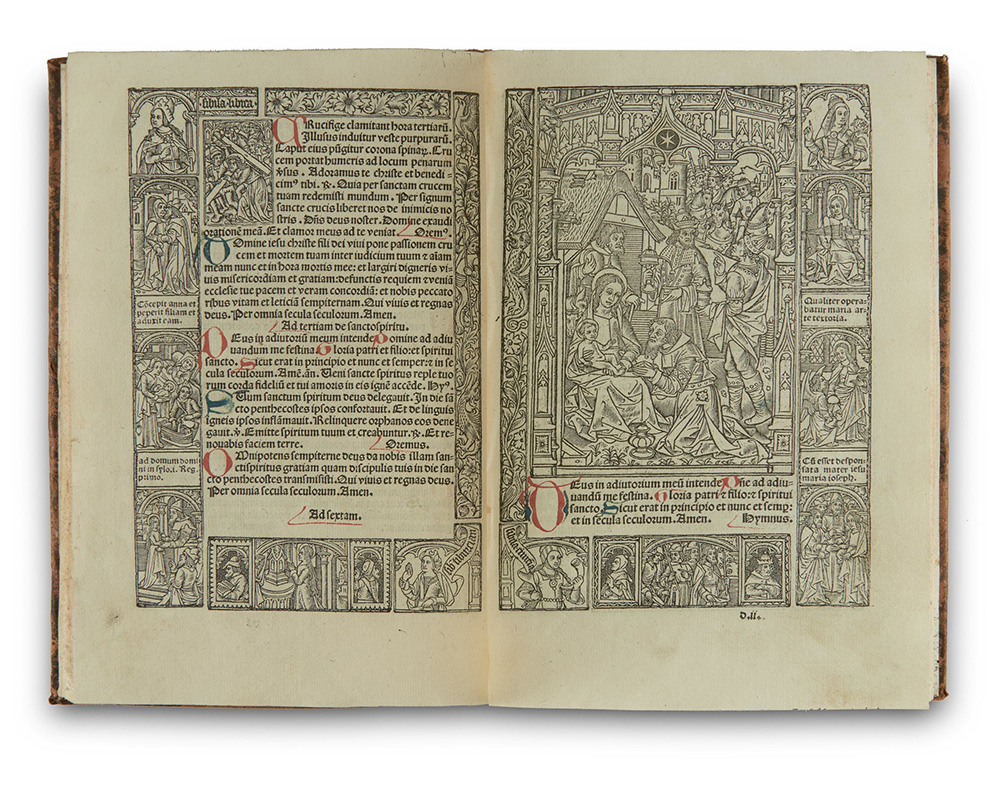 sibila libica.
CRucifige clamitant hora tertiarũ.
Illusus induitur veste purpurarũ.
Caput eius pũgitur corona spinarum. Cru
cem portat humeris ad locum penarum
ꝟsus. Adoramus te christe et benedi-
cimꝰ tibi. ꝶ. Quia per sanctam crucem
tuam redemisti mundum. Per signum
sancte crucis liberet nos de inimicis no
stris. Dñs deus noster. Domine exaudi
orationẽ meã. Et clamor meus ad te veniat. Oremꝰ.
DOmine iesu christe fili dei viui pone passionem cru
cem et mortem tuam inter iudicium tuum ⁊ aĩam
meam nunc et in hora mortis mee: et largiri digneris vi-
uis misericordiam et gratiam: defunctis requiem ⁊ veniã
ecclesie tue pacem et veram concordiã: et nobis peccato
ribus vitam et leticiã sempiternam. Qui viuis et regnas
deus. Per omnia secula seculorum. Amen.
Ad tertiam de sanctospiritu.
DEus in adiutoriũ meum intende. Domine ad adiu
uandum me festina. Gloria patri et filio: et spiritui
sancto. Sicut erat in principio et nunc et semper: ⁊ in se
cula seculorum. Amẽ. añ. Ueni sancte spiritus reple tuo
rum corda fideliũ et tui amoris in eis ignẽ accẽde. Hyꝰ.
SUum sanctum spiritum deus delegauit. In die sã
cto penthecostes ipsos confortauit. Et de linguis
igneis ipsos inflãmauit. Relinquere orphanos eos dene
gauit. ꝟ. Emitte spiritum tuum et creabuntur. ꝶ. Et re-
nouabis faciem terre. Oremus.
OMnipotens sempiterne deus da nobis illam san-
ctispiritus gratiam quam discipulis tuis in die san-
cto penthecostes transmisisti. Qui viuis et regnas deus.
Per omnia secula seculorum. Amen.
Ad sextam.
Cõcepit anna et
peperit filiam et
aduxit eam.
ad domum domi
ni in sylo. i. Reg.
primo.
DEus in adiutorium meũ intende. Dñe ad adiu
uandũ me festina. Gloria patri ⁊ filio: ⁊ spiritui
sancto. Sicut erat in principio et nunc et semp:
et in secula seculorum. Amen. Hymnus.
Qualiter opera-
batur maria ar-
te textoria.
Cũ esset despon-
sata mater iesu
maria ioseph.
d.ii.